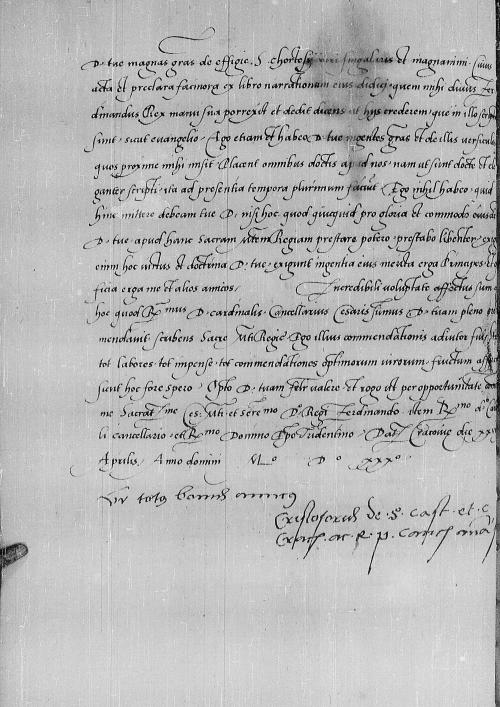 D. tue magnas gras de effigie. S. chortesij viri singularis et magnanimi. Cuius
acta et preclara facinora ex libro narrationum eius didici, quem mihi divus Fer
dinandus Rex manu sua porrexit et dedit dicens ut hijs crederem que in illo script
sunt sicut evangelio. Ago etiam et habeo D. tue ingentes gras et de illis versicul
quos proxime mihi misit. Placent omnibus doctis apud nos. nam ut sunt docte et ele
ganter scripti, ita ad presentia tempora plurimum faciut. Ego nihil habeo, quid
hinc mittere debeam tue D. nisi hoc quod quicquid pro gloria et commodo
D. tue apud hanc Sacram Mtem Regiam prestare potero, prestabo libenter, exig
enim hoc virtus et doctrina D. tue, exigunt ingentia eius merita erga Principes,
ficia erga me et alios amicos. Incredibili voluptate affectus sum
hoc quod Rmus D. cardinalis Cancellarius Cesaris sumus D. tuam pleno
mendavit scribens Sacre Mti Regie. Ego illius commendationis adiutor fui,
tot labores, tot impense, tot commendationes optimorum virorum, fructum
sunt hoc fore spero. Opto D. tuam felr valere et rogo ut per opportunitate
me Sacrat me Ces. Mti et Sereme Do Regi Ferdinando item Rmo do
li cancellario et Rmo Domino Epo Tridentino. Dat Cracovie die xx
Aprilis Anno domini Mo Do xxxo
Vr totus bonus amicus
Cristoforus de S. cast. et. c
Crac. ac. R. p. canc